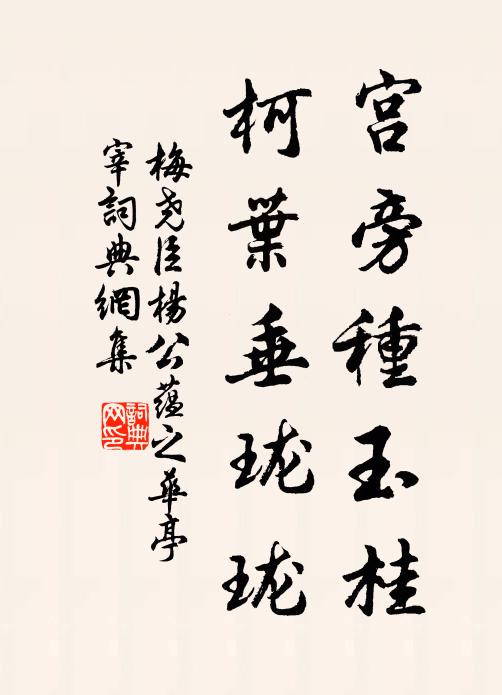 宫旁種玉桂
柯葉垂珑珑
梅尧臣楊公蕴之華亭
宰詞典網集
詞典网印